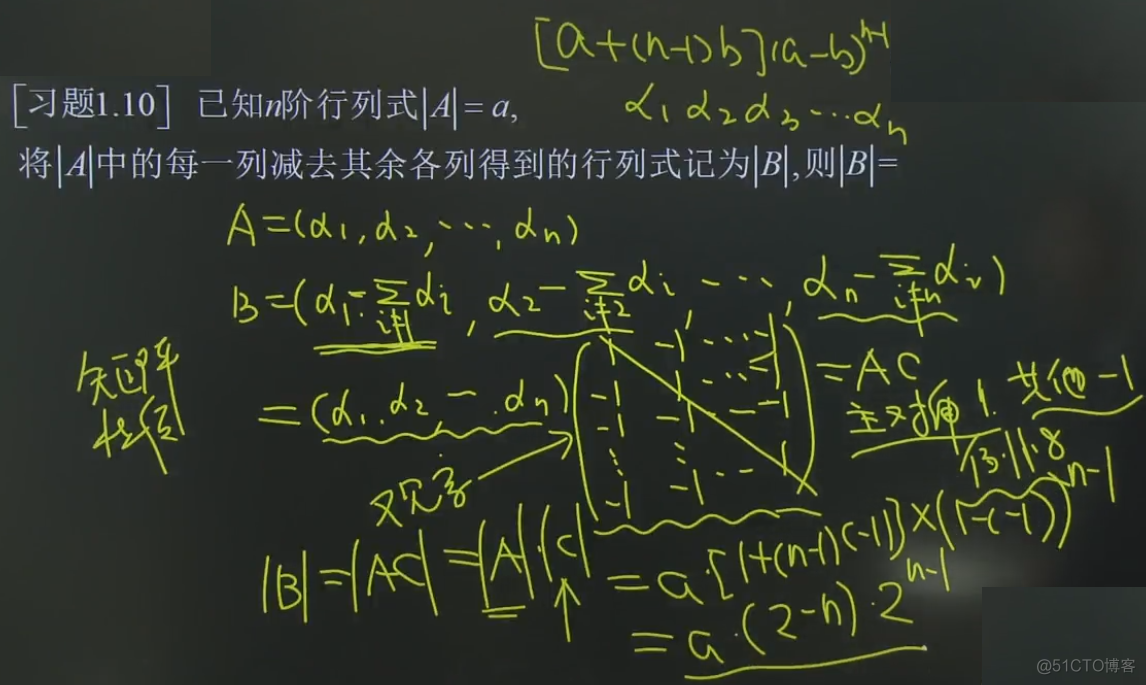 [a+(n-1)b](a-b)^{n-1}
[习题1.10] 已知n阶行列式|A|= a,
α₁ α₂ α₃ … αₙ
将|A|中的每一列减去其余各列得到的行列式记为|B|,则|B|=
A=(α₁, α₂, …, αₙ)
B=(α₁-∑_{i≠1}αᵢ, α₂-∑_{i≠2}αᵢ, …, αₙ-∑_{i≠n}αᵢ)
矩阵
=(α₁, α₂ … αₙ)
1 -1 … -1
-1 … -1
-1 -1 … -1
⋮ ⋮
-1 -1 … 1
=AC
主对角1, 其他-1
例3.11.8
又见
|B|=|AC|=|A|·|C|
=a·[1+(n-1)(-1)]×(1-(-1))^{n-1}
=a·(2-n)·2^{n-1}
@51CTO博客